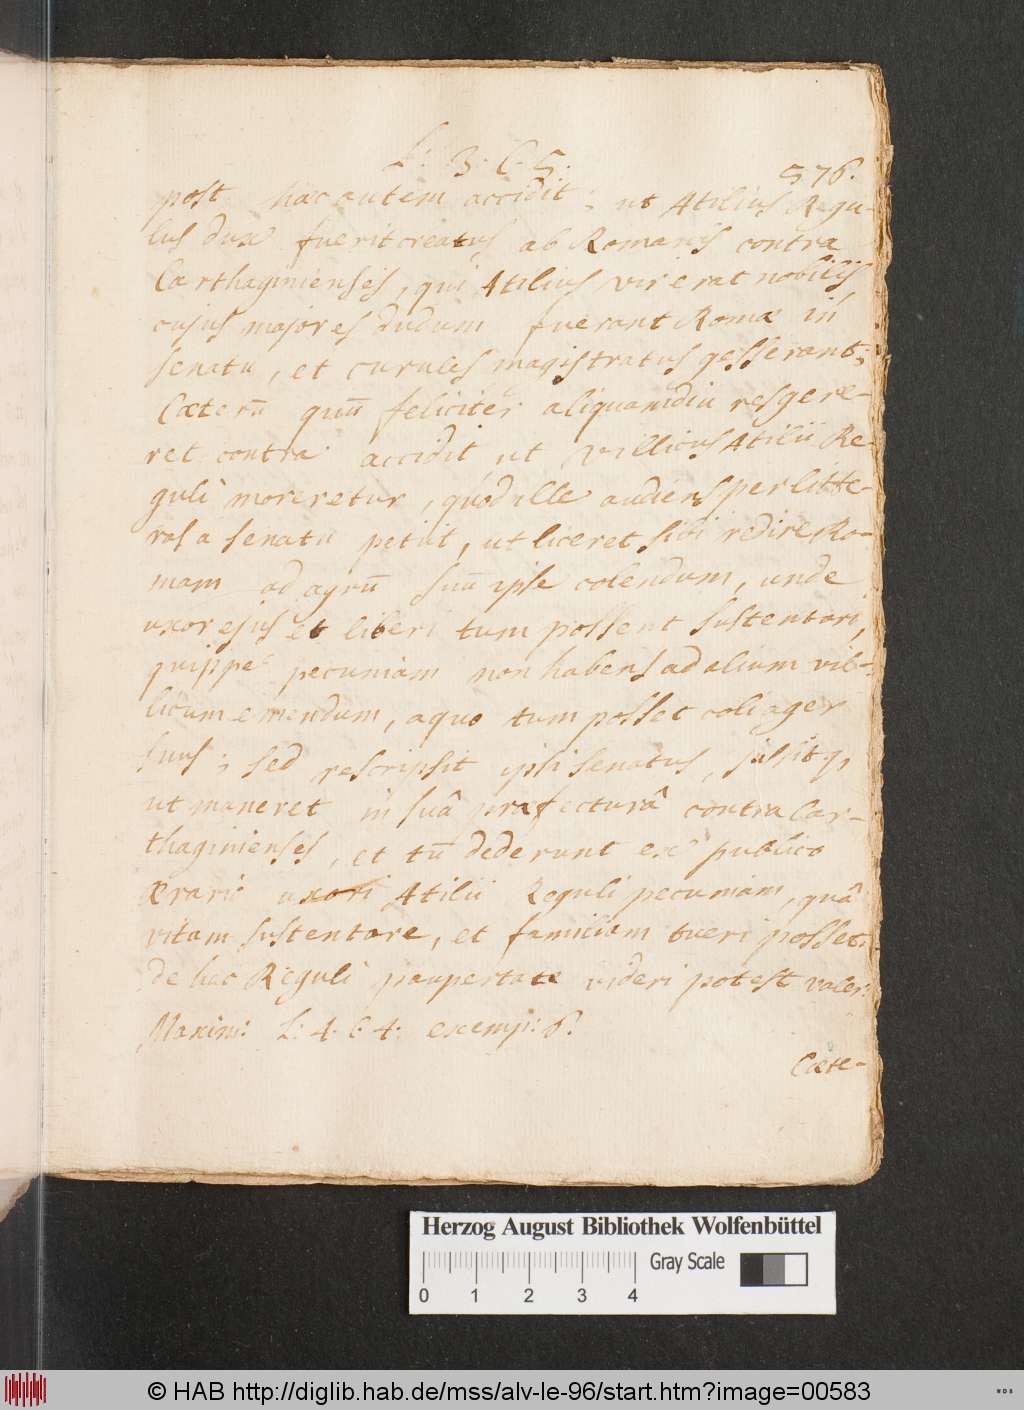 L: 3. C. 5. 576.
post haec autem accidit; ut Atilius Regu-
lus dux fuerit creatus ab Romanis contra
Carthaginienses, qui Atilius vir erat nobilis,
cujus majores dudum fuerant Romae in
senatu, et curules magistratus gesserant;
Caeterū quū feliciter aliquamdiu res gere-
ret contra accidit ut villicus Atilii Re-
guli moreretur, quod ille audiens per litte-
ras a senatu petiit, ut liceret sibi redire Ro-
mam ad agrū suū ipse colendum, unde
uxor ejus et liberi tum possent sustentari,
quippe pecuniam non habens ad alium vil-
licum emendum, a quo tum posset coli ager
suus; sed rescripsit ipsi senatus, jussitq,
ut maneret in suâ praefecturâ contra Car-
thaginienses, et tū dederunt ex publico
aerario uxori Atilii Reguli pecuniam, quâ
vitam sustentare, et familiam tueri posset;
de hac Reguli paupertate videri potest Valer:
Maxim: L: 4. C. 4: exemp: 6.
Caete-
Herzog August Bibliothek Wolfenbüttel
Gray Scale
0 1 2 3 4
© HAB http://diglib.hab.de/mss/alv-le-96/start.htm?image=00583